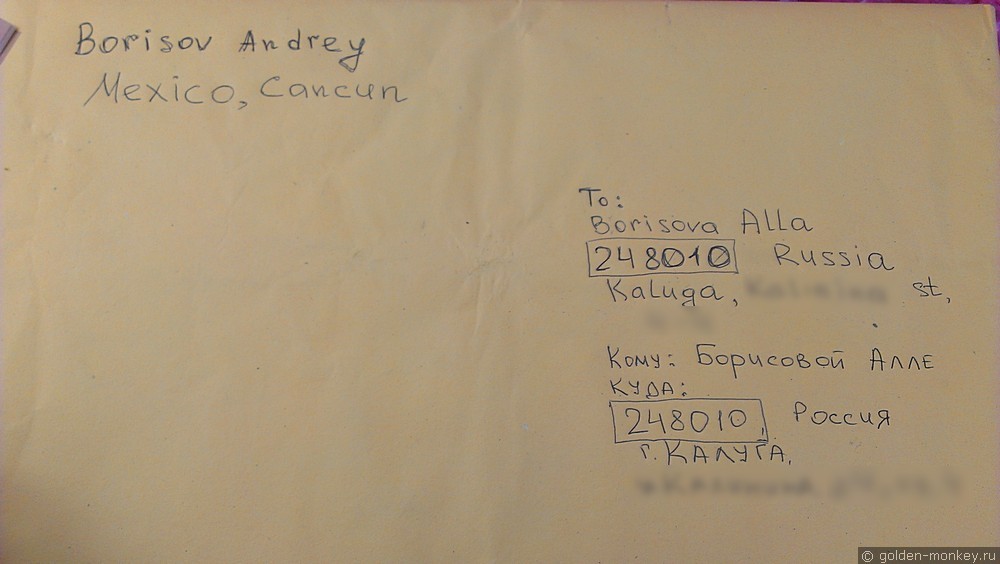 Borisov Andrey
Mexico, Cancun
To:
Borisova Alla
248010 Russia
Kaluga, st,
Кому: Борисовой Алле
КУДА:
248010, Россия
г. КАЛУГА,
© golden-monkey.ru